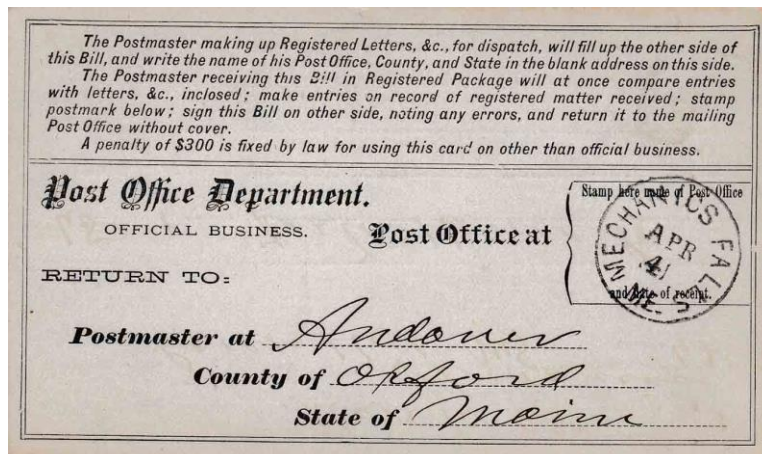 The Postmaster making up Registered Letters, &c., for dispatch, will fill up the other side of
this Bill, and write the name of his Post Office, County, and State in the blank address on this side.
The Postmaster receiving this Bill in Registered Package will at once compare entries
with letters, &c., inclosed; make entries on record of registered matter received; stamp
postmark below; sign this Bill on other side, noting any errors, and return it to the mailing
Post Office without cover.
A penalty of $300 is fixed by law for using this card on other than official business.
Post Office Department.
OFFICIAL BUSINESS.
Post Office at
Stamp here name of Post Office
and date of receipt.
MECHANICS FALLS
APR
ME.
RETURN TO:
Postmaster at Andover
County of Oxford
State of Maine